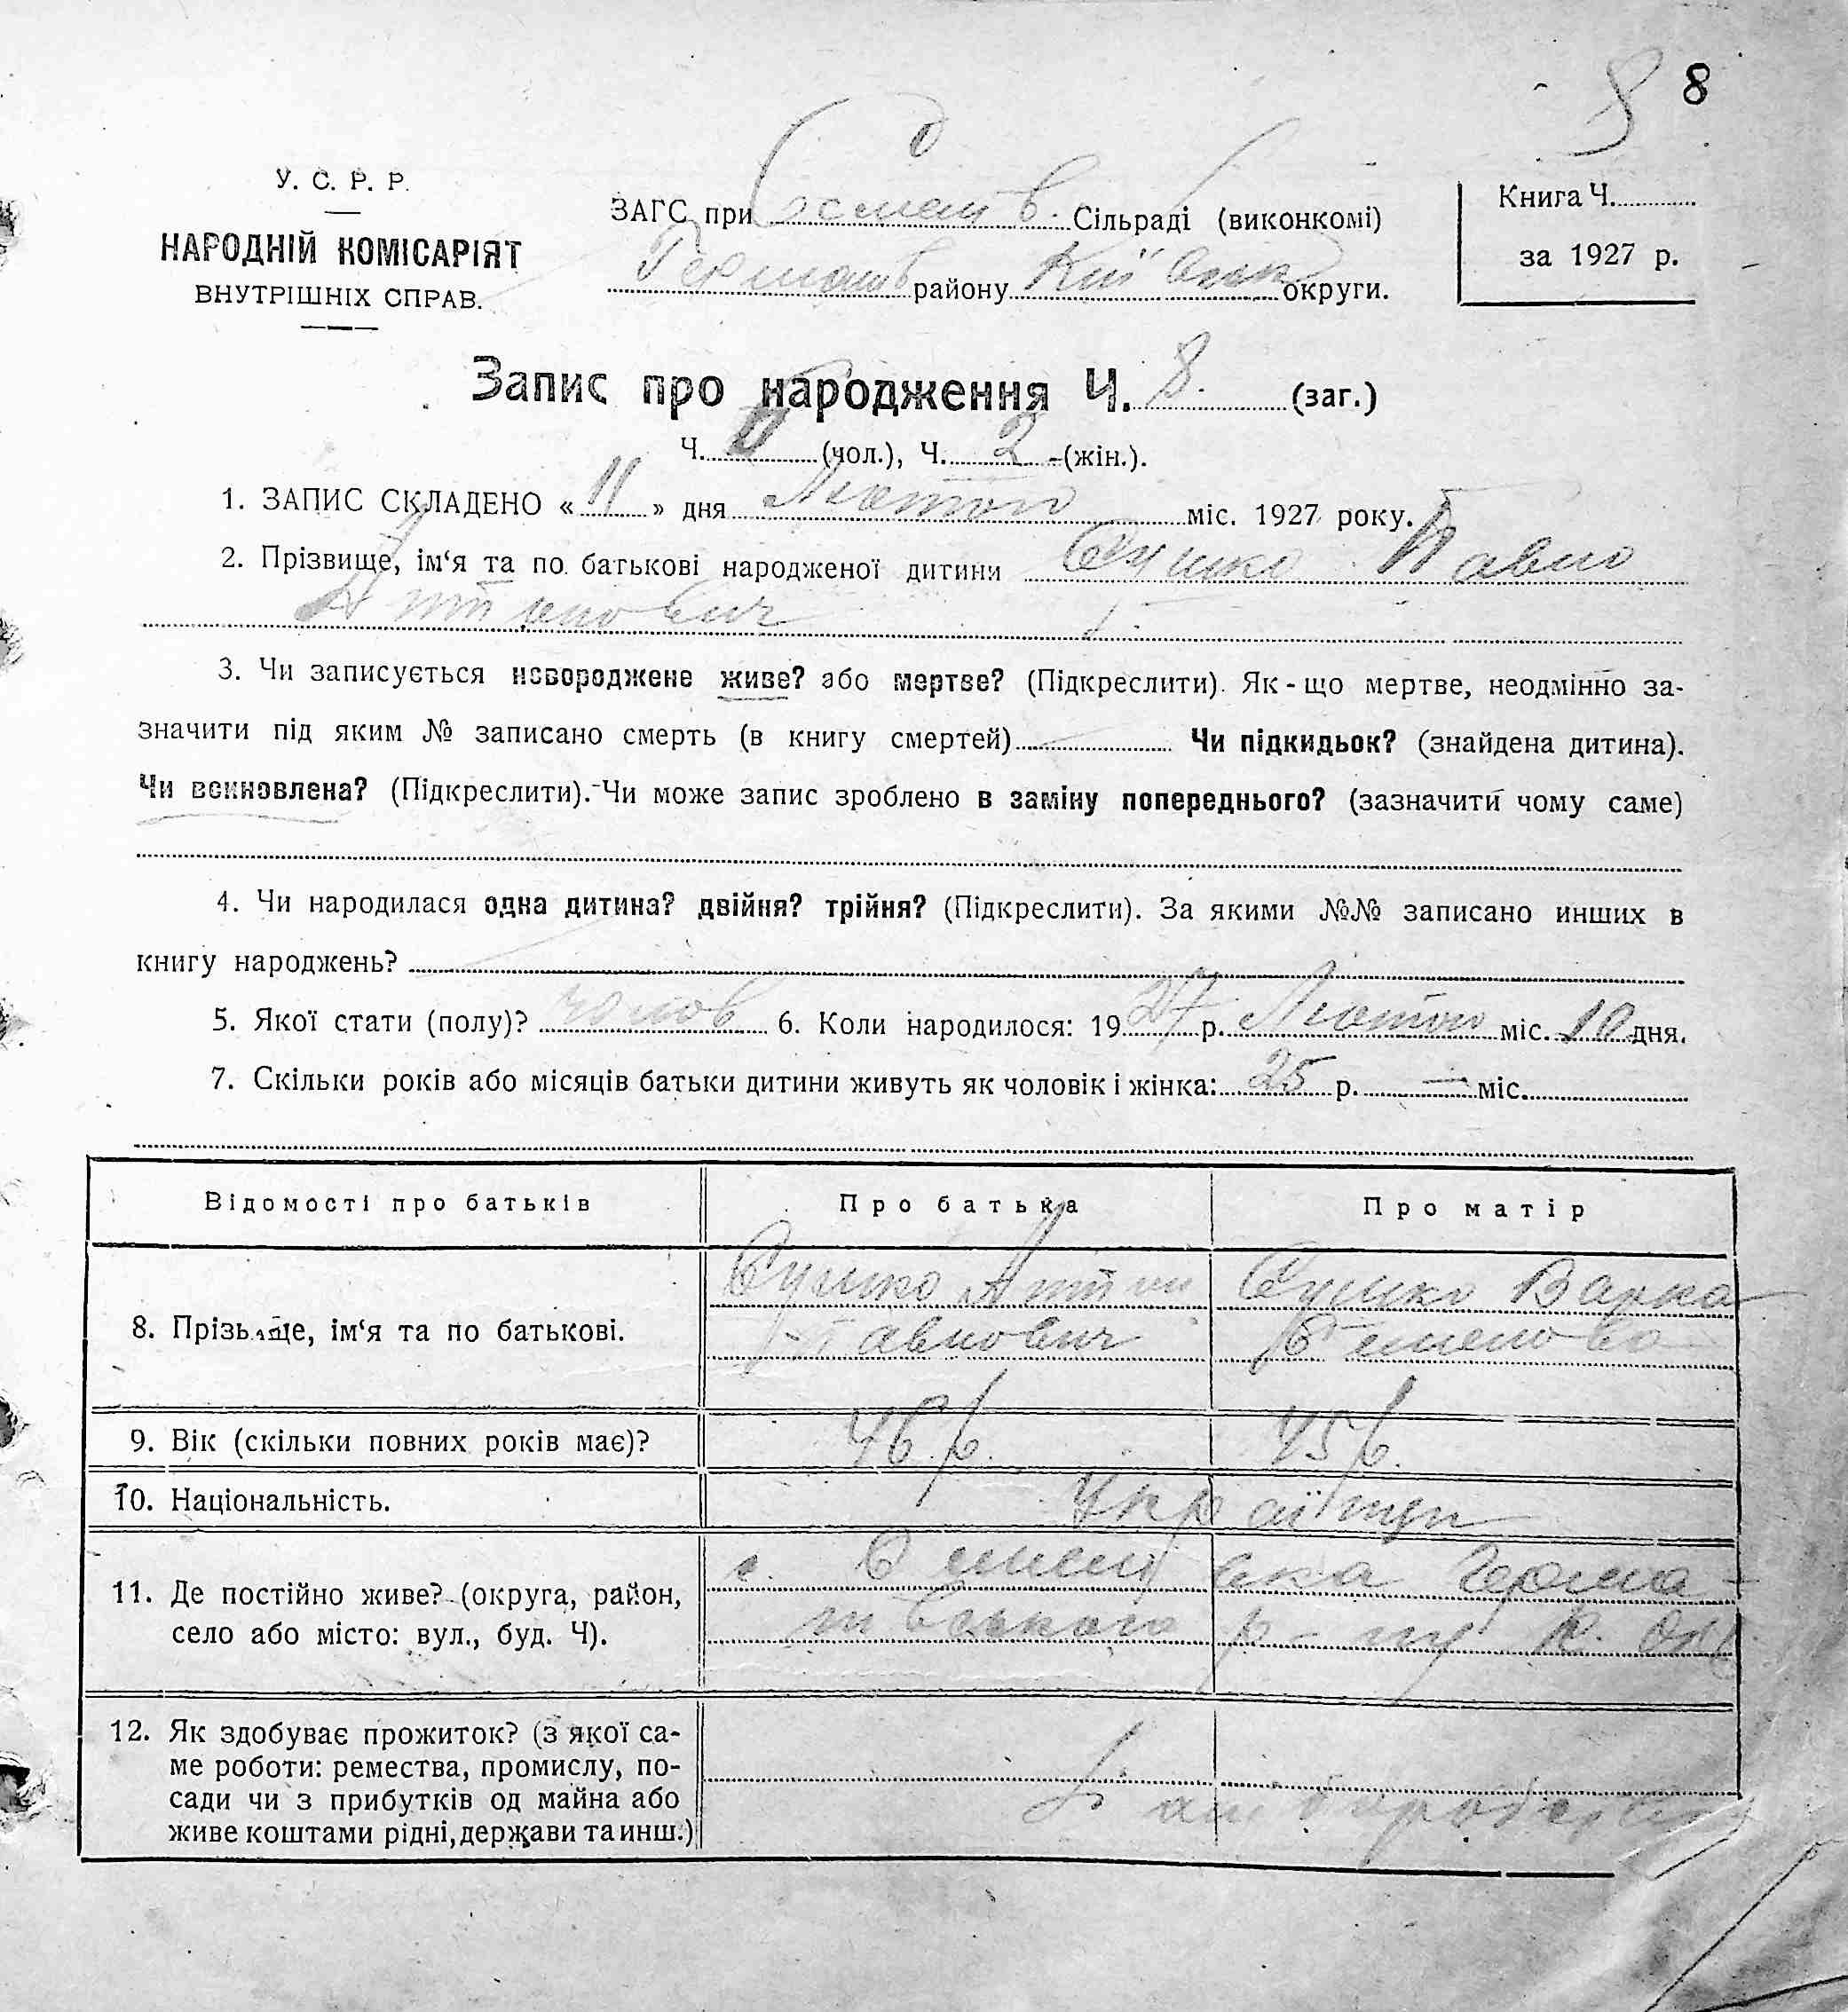 8 8
У. С. Р. Р.
НАРОДНІЙ КОМІСАРІЯТ
ВНУТРІШНІХ СПРАВ.
ЗАГС при Сільраді (виконкомі)
району Київськ округи.
Книга Ч.
за 1927 р.
Запис про народження Ч. 8. (заг.)
Ч. (чол.), Ч. 2 (жін.).
1. ЗАПИС СКЛАДЕНО « 11 » дня Лютого міс. 1927 року.
2. Прізвище, ім‘я та по батькові народженої дитини Сушко Павло
3. Чи записується новороджене живе? або мертве? (Підкреслити). Як-що мертве, неодмінно за-
значити під яким № записано смерть (в книгу смертей) Чи підкидьок? (знайдена дитина).
Чи всиновлена? (Підкреслити). Чи може запис зроблено в заміну попереднього? (зазначити чому саме)
4. Чи народилася одна дитина? двійня? трійня? (Підкреслити). За якими №№ записано инших в
книгу народжень?
5. Якої стати (полу)? чолов 6. Коли народилося: 1927 р. Лютого міс. 10 дня.
7. Скільки років або місяців батьки дитини живуть як чоловік і жінка: 25 р. — міс.
Відомості про батьків Про батька Про матір
8. Прізвище, ім‘я та по батькові. Сушко Сушко Варка
Павлович
9. Вік (скільки повних років має)? 46 р. 45 р.
10. Національність. Українці
11. Де постійно живе? (округа, район,
село або місто: вул., буд. Ч).
с. Герма-
нівського р-ну К. окр
12. Як здобуває прожиток? (з якої са-
ме роботи: ремества, промислу, по-
сади чи з прибутків од майна або
живе коштами рідні, держави та инш.)